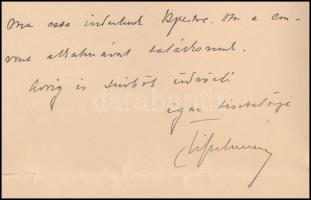 Ma este indulunk Bpestre. Ott a con-
vent alkalmával találkozunk.
Addig is szívből üdvözli
igaz tisztelője